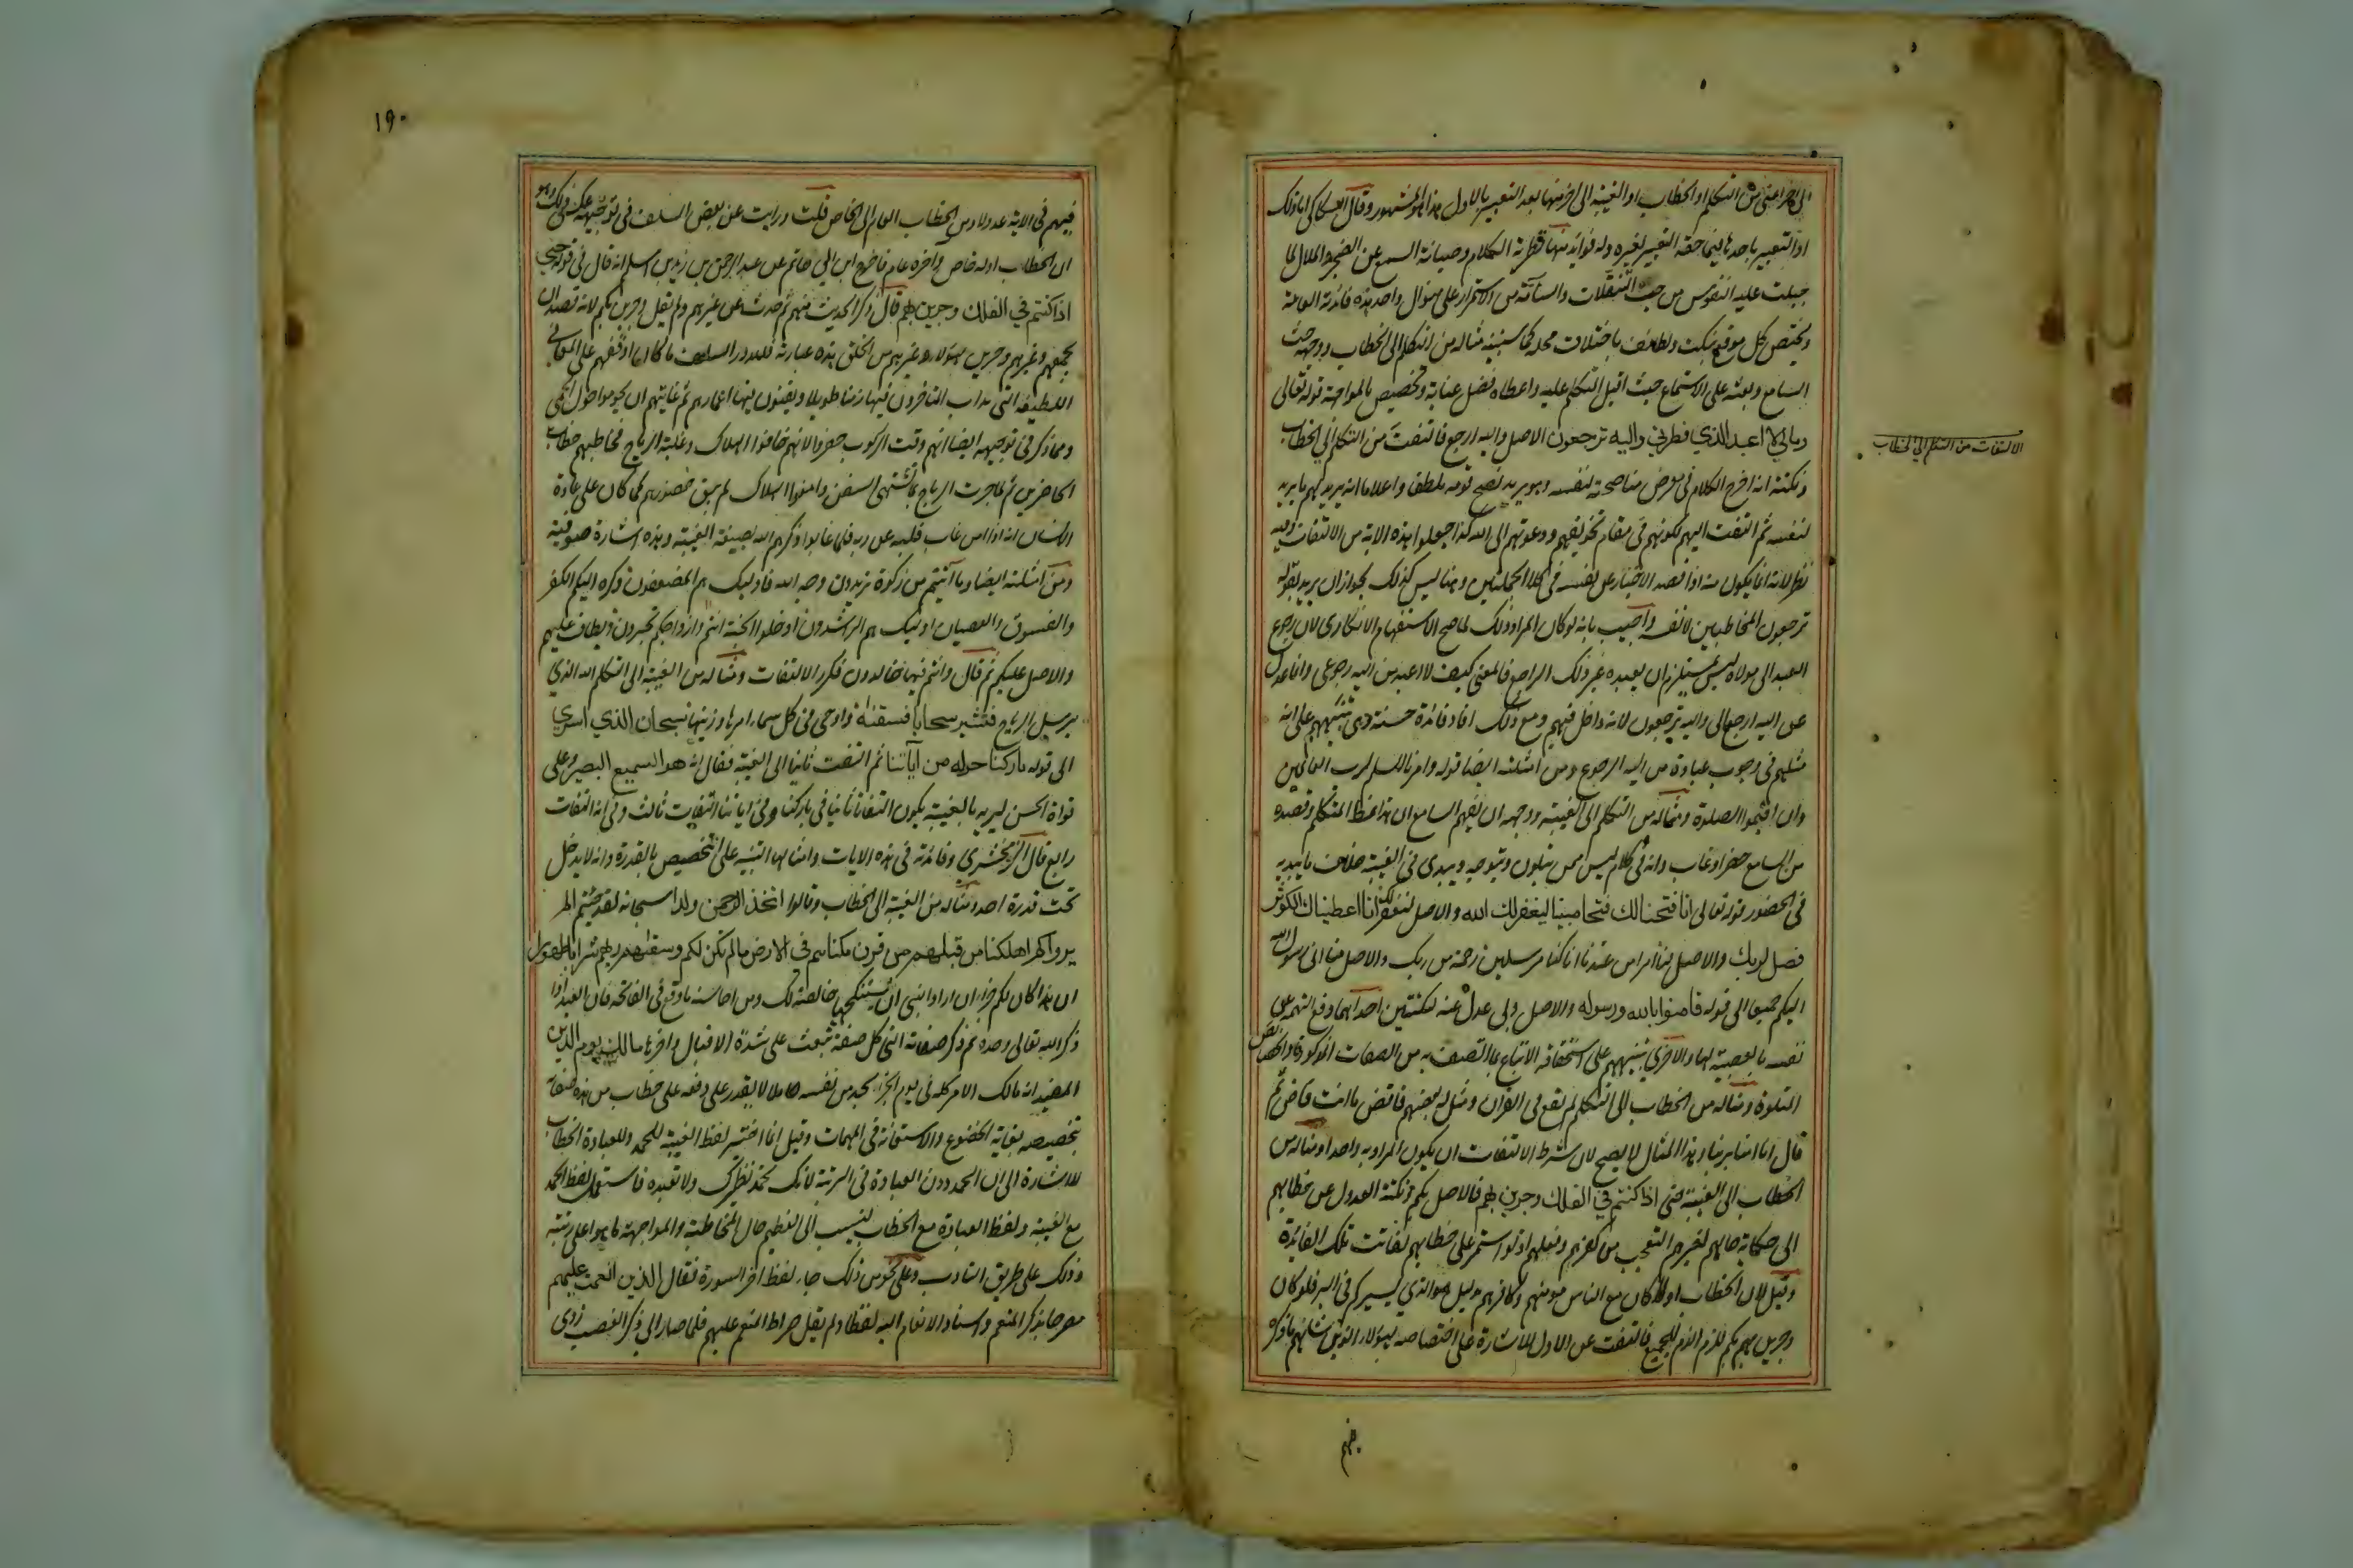 الى اخر اعنى من التكلم او الخطاب او الغيبة الى اخر منها بعد التعبير بالاول هذا هو المشهور وقال السكاكى اما ذلك
او التعبير باحدها فيما حقه التعبير لغيره وله فوائد منها تطرية الكلام وصيانة السمع عن الضجر والملال لما
جبلت عليه النفوس من حب التنقلات والسآمة من الاستمرار على منوال واحد هذه فائدته العامة
ويختص كل موقع بنكت ولطائف باختلاف محله كما سنبينه مثاله من التكلم الى الخطاب ووجهه حث
السامع وبعثه على الاستماع حيث اقبل المتكلم عليه واعطاه فضل عناية وتخصيص بالمواجهة قوله تعالى
ومالي لا اعبد الذي فطرني واليه ترجعون الاصل واليه ارجع فالتفت من التكلم الى الخطاب
الالتفات من التكلم الى الخطاب
ونكتته انه اخرج الكلام فى معرض مناصحته لنفسه وهو يريد نصح قومه تلطفا واعلاما انه يريد لهم ما يريد
لنفسه ثم التفت اليهم لكونهم فى مقام تخويفهم ودعوتهم الى الله كذا جعلوا هذه الاية من الالتفات وفيه
نظر لانه انما يكون منه اذا قصد الاخبار عن نفسه فى كلا الجملتين وهنا ليس كذلك لجواز ان يريد بقوله
ترجعون المخاطبين لا نفسه واجيب بانه لو كان المراد ذلك لما صح الاستفهام الانكارى لان رجوع
العبد الى مولاه ليس بمستلزم ان يعبده غير ذلك الراجع فالمعنى كيف لا اعبد من اليه رجوعى وانما عدل
عن اليه ارجع الى واليه ترجعون لانه داخل فيهم ومع ذلك افاد فائدة حسنة وهى تنبيههم على انه
مثلهم فى وجوب عبادة من اليه الرجوع ومن امثلته ايضا قوله وامرنا لنسلم لرب العالمين
وان اقيموا الصلوة ومثاله من التكلم الى الغيبة ووجهه ان يفهم السامع ان هذا نمط المتكلم وقصده
من السامع حضر او غاب وانه فى كلامه ليس ممن يتلون ويتوجه ويبدى فى الغيبة خلاف ما يبديه
فى الحضور قوله تعالى انا فتحنا لك فتحا مبينا ليغفر لك الله والاصل لنغفر لك انا اعطيناك الكوثر
فصل لربك والاصل لنا امرا من عندنا انا كنا مرسلين رحمة من ربك والاصل منا انى رسول الله
اليكم جميعا الى قوله فامنوا بالله ورسوله والاصل وبى عدل عنه لنكتتين احداهما دفع التهمة عن
نفسه بالعصبية لها والاخرى تنبيههم على استحقاقه الاتباع بما اتصف به من الصفات المذكورة والخصائص
المتلوة ومثاله من الخطاب الى التكلم لم يقع فى القران ومثل له بعضهم فاقض ما انت قاض ثم
قال انا امنا بربنا وهذا المثال لا يصح لان شرط الالتفات ان يكون المراد به واحدا ومثاله من
الخطاب الى الغيبة حتى اذا كنتم في الفلك وجرين بهم فالاصل بكم ونكتة العدول عن خطابهم
الى حكاية حالهم لغيرهم التعجب من كفرهم وفعلهم اذ لو استمر على خطابهم لفاتت تلك الفائدة
وقيل لان الخطاب اولا كان مع الناس مومنهم وكافرهم بدليل هو الذي يسيركم فى البر فلو كان
وجرين بكم للزم الذم للجميع فالتفت عن الاول للاشارة على اختصاصه بهؤلاء الذين شانهم ما ذكره
فيهم
١٩٠
فيهم فى الاية عدولا من الخطاب العام الى الخاص قلت ورايت عن بعض السلف فى توجيهه عكس ذلك وهو
ان الخطاب اوله خاص وآخره عام فاخرج ابن ابي حاتم عن عبد الرحمن بن زيد بن اسلم انه قال فى قوله حتى
اذا كنتم في الفلك وجرين بهم قال ذكر الحديث عنهم ثم حدث عن غيرهم ولم يقل وجرين بكم لانه قصد ان
يجمعهم وغيرهم وجرين بهؤلاء وغيرهم من الخلق هذه عبارته فلله در السلف ما كان اوقفهم على المعانى
اللطيفة التى يداب المتاخرون فيها زمنا طويلا ويفنون فيها اعمارهم ثم غايتهم ان يحوموا حول الحمى
ومما ذكر فى توجيهه ايضا انهم وقت الركوب حضروا لانهم خافوا الهلاك وغلبة الرياح فخاطبهم خطاب
الحاضرين ثم لما جرت الرياح بما تشتهى السفن وامنوا الهلاك لم يبق حضورهم كما كان على عادة
الانسان انه اذا امن غاب قلبه عن ربه فلما غابوا ذكرهم الله بصيغة الغيبة وهذه اشارة صوفية
ومن امثلته ايضا وما آتيتم من زكوة تريدون وجه الله فاولئك هم المضعفون وكره اليكم الكفر
والفسوق والعصيان اولئك هم الراشدون ادخلوا الجنة انتم وازواجكم تحبرون ويطاف عليهم
والاصل عليكم ثم قال وانتم فيها خالدون فكرر الالتفات ومثاله من الغيبة الى التكلم الله الذي
يرسل الرياح فتثير سحابا فسقناه واوحى فى كل سماء امرها وزينا سبحان الذي اسرى
الى قوله باركنا حوله من آياتنا ثم التفت ثانيا الى الغيبة فقال انه هو السميع البصير وعلى
قراءة الحسن ليريه بالغيبة يكون التفاتا ثانيا فى باركنا وفى اياتنا التفات ثالث وفى انه التفات
رابع قال الزمخشري وفائدته فى هذه الايات وامثالها التنبيه على التخصيص بالقدرة وانه لا يدخل
تحت قدرة احد ومثاله من الغيبة الى الخطاب وقالوا اتخذ الرحمن ولدا سبحانه لقد جئتم الم
يروا كم اهلكنا من قبلهم من قرن مكناهم في الارض ما لم نمكن لكم وسقاهم ربهم شرابا طهورا
ان هذا كان لكم جزاء ان اراد النبي ان يستنكحها خالصة لك ومن محاسنه ما وقع فى الفاتحة فان العبد اذا
ذكر الله تعالى وحده ثم ذكر صفاته التى كل صفة تبعث على شدة الاقبال واخرها مالك يوم الدين
المفيد انه مالك الامر كله فى يوم الجزاء يجد من نفسه حاملا لا يقدر على دفعه على خطاب من هذه صفاته
بتخصيصه بغاية الخضوع والاستعانة فى المهمات وقيل انما اختير لفظ الغيبة للحمد وللعبادة الخطاب
للاشارة الى ان الحمد دون العبادة فى الرتبة لانك تحمد نظيرك ولا تعبده فاستعمل لفظ الحمد
مع الغيبة ولفظ العبادة مع الخطاب لينسب الى العظيم حال المخاطبة والمواجهة ما هو اعلى رتبة
وذلك على طريق التادب وعلى نحو من ذلك جاء لفظ اخر السورة فقال الذين انعمت عليهم
مصرحا بذكر المنعم واسناد الانعام اليه لفظا ولم يقل صراط المنعم عليهم فلما صار الى ذكر الغضب زوى